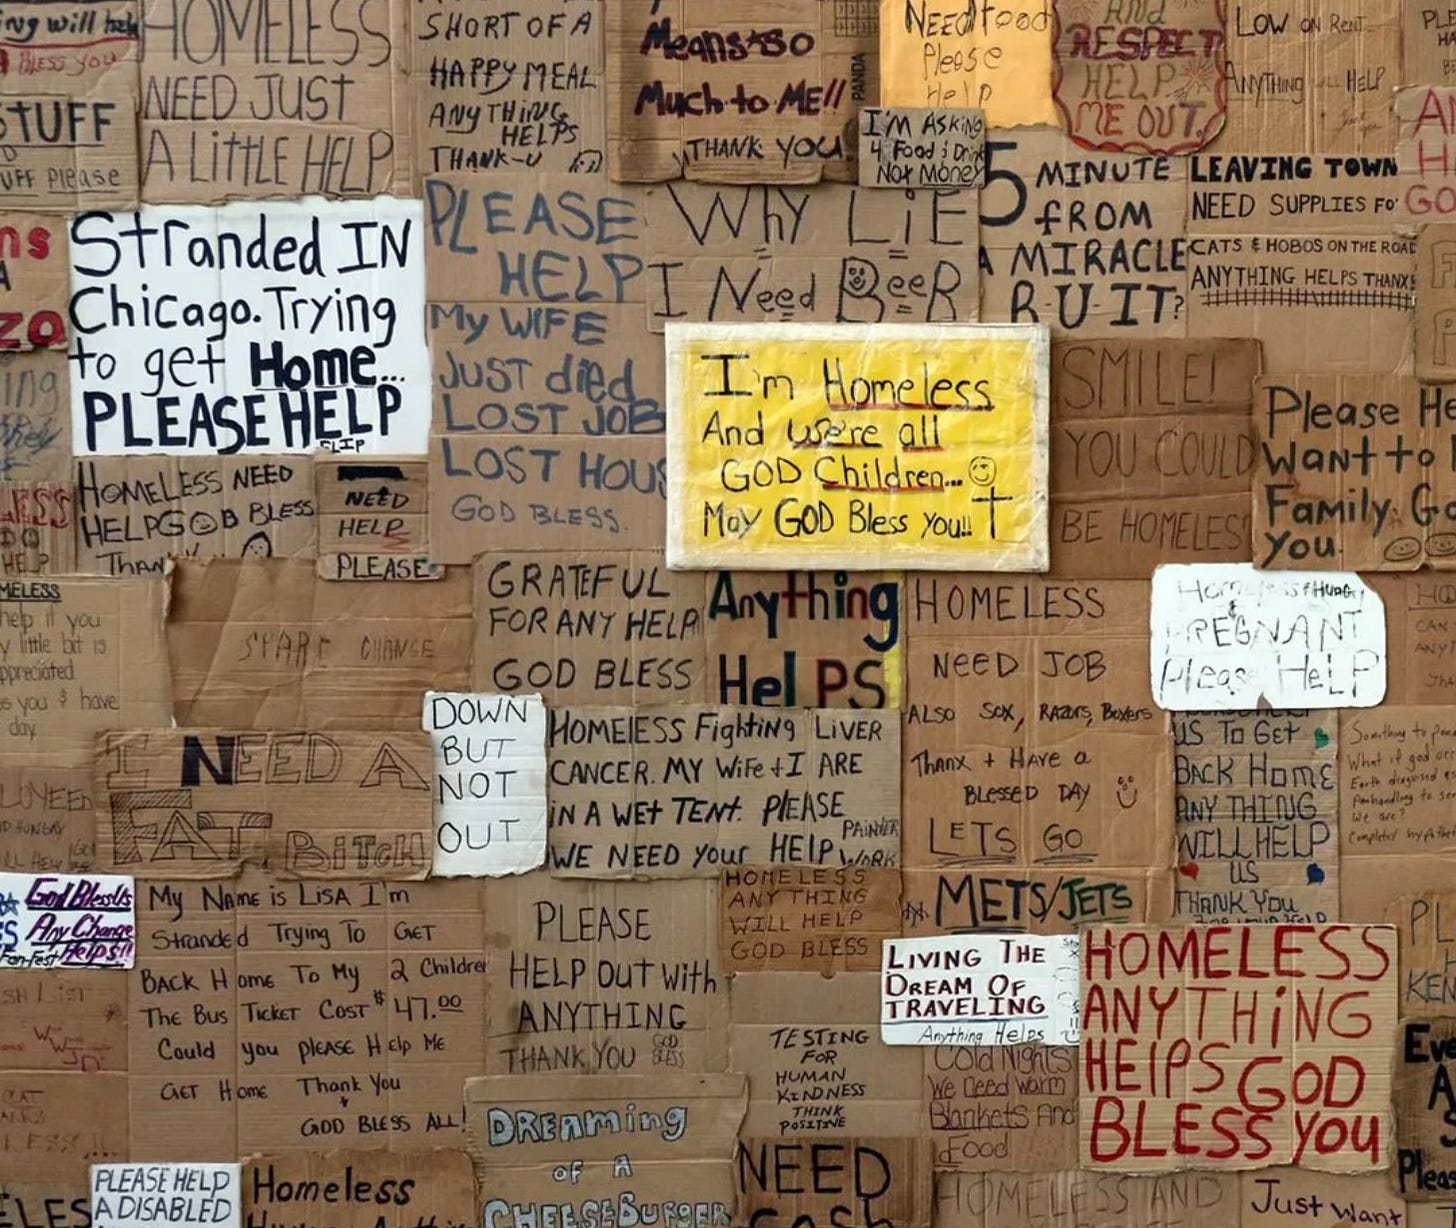 BLESS YOU
STUFF
Please
HOMELESS
NEED JUST
A LiTTLE HELP
SHORT OF A
HAPPY MEAL
ANYTHING
HELPS
THANK-U
Means so
Much to ME!!
THANK YOU
PANDA
NEED food
Please
Help
I'M ASKING
4 Food & Drink
Not Money
AND
RESPECT
HELP
ME OUT.
LOW ON RENT
ANYTHING WILL HELP
Stranded IN
Chicago. Trying
to get Home...
PLEASE HELP
SLIP
PLEASE
HELP
My WIFE
JUST died
LOST JOB
LOST HOUS
GOD BLESS.
WhY LiE
I Need BeeR
5 MINUTE
fROM
A MIRACLE
R-U-IT?
LEAVING TOWN
NEED SUPPLIES FO
CATS & HOBOS ON THE ROAD
ANYTHING HELPS THANX!
I'm Homeless
And we're all
GOD Children...
May GOD Bless you!!
SMILE!
YOU COULD
BE HOMELESS
Please He
Want to
Family. Go
you.
HOMELESS NEED
HELP GOD BLESS
Thank
NEED
HELP
PLEASE
MELESS
help if you
little bit is
appreciated.
you & have
day.
SPARE CHANGE
GRATEFUL
FOR ANY HELP
GOD BLESS
Anything
HelPS
HOMELESS
NEED JOB
ALSO SOX, RAZORS, BOXERS
THANX + HAVE A
BLESSED DAY
LETS GO
METS/JETS
Homeless & HUNGRY
&
PREGNANT
Please HeLP
I NEED A
FAT BiTCH
DOWN
BUT
NOT
OUT
HOMElESS Fighting LIVER
CANCER. MY Wife + I ARE
iN A WEt TENT. PlEASE
WE NEED your HElP
PAINTER
WORK
US TO GET
BACK HOME
ANY THING
WILL HELP
US
THANK YOU
Something to
What if god
Earth disguised as
Panhandling to see
We are?
Completely
God Bless Us
Any Change
Helps!!
Fan-Fest
My NAME is LISA I'm
Stranded Trying To GET
BACK Home To My 2 Children
THE BUS TICKET COST $47.00
Could you PlEASE Help ME
GET Home Thank You
+
GOD BLESS ALL!
PLEASE
HELP OUT With
ANYTHING
THANK YOU GOD BLESS
HOMELESS
ANY THING
WILL HELP
GOD BLESS
LIVING THE
DREAM OF
TRAVELING
Anything Helps
HOMELESS
ANYTHiNG
HElPS GOD
BLESS YOU
TESTING
FOR
HUMAN
KINDNESS
THINK
POSITIVE
Cold Nights
We Need Warm
Blankets And
Food
DREAMING
OF A
CHEESEBURGER
PLEASE HELP
A DISABLED
Homeless
NEED
Cash
HOMELESS AND
Just Want
Eve
Pleas